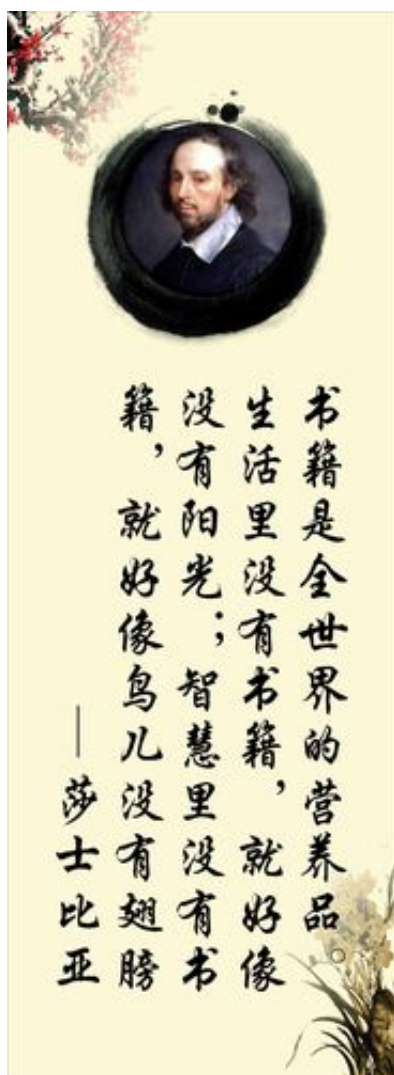 书籍是全世界的营养品。
生活里没有书籍，就好像
没有阳光；智慧里没有书
籍，就好像鸟儿没有翅膀
—莎士比亚